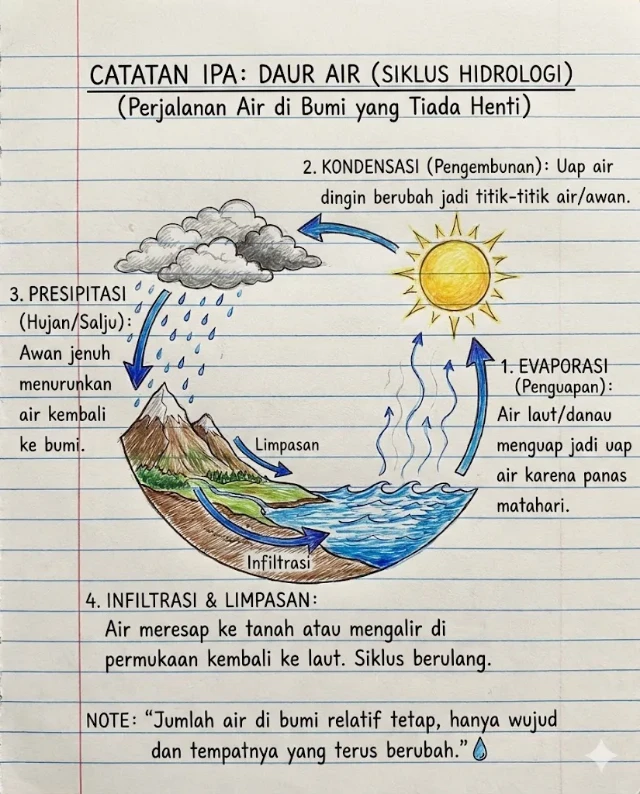 CATATAN IPA: DAUR AIR (SIKLUS HIDROLOGI)
(Perjalanan Air di Bumi yang Tiada Henti)
2. KONDENSASI (Pengembunan): Uap air
dingin berubah jadi titik-titik air/awan.
3. PRESIPITASI
(Hujan/Salju):
Awan jenuh
menurunkan
air kembali
ke bumi.
1. EVAPORASI
(Penguapan):
Air laut/danau
menguap jadi uap
air karena panas
matahari.
Limpasan
Infiltrasi
4. INFILTRASI & LIMPASAN:
Air meresap ke tanah atau mengalir di
permukaan kembali ke laut. Siklus berulang.
NOTE: “Jumlah air di bumi relatif tetap, hanya wujud
dan tempatnya yang terus berubah.”